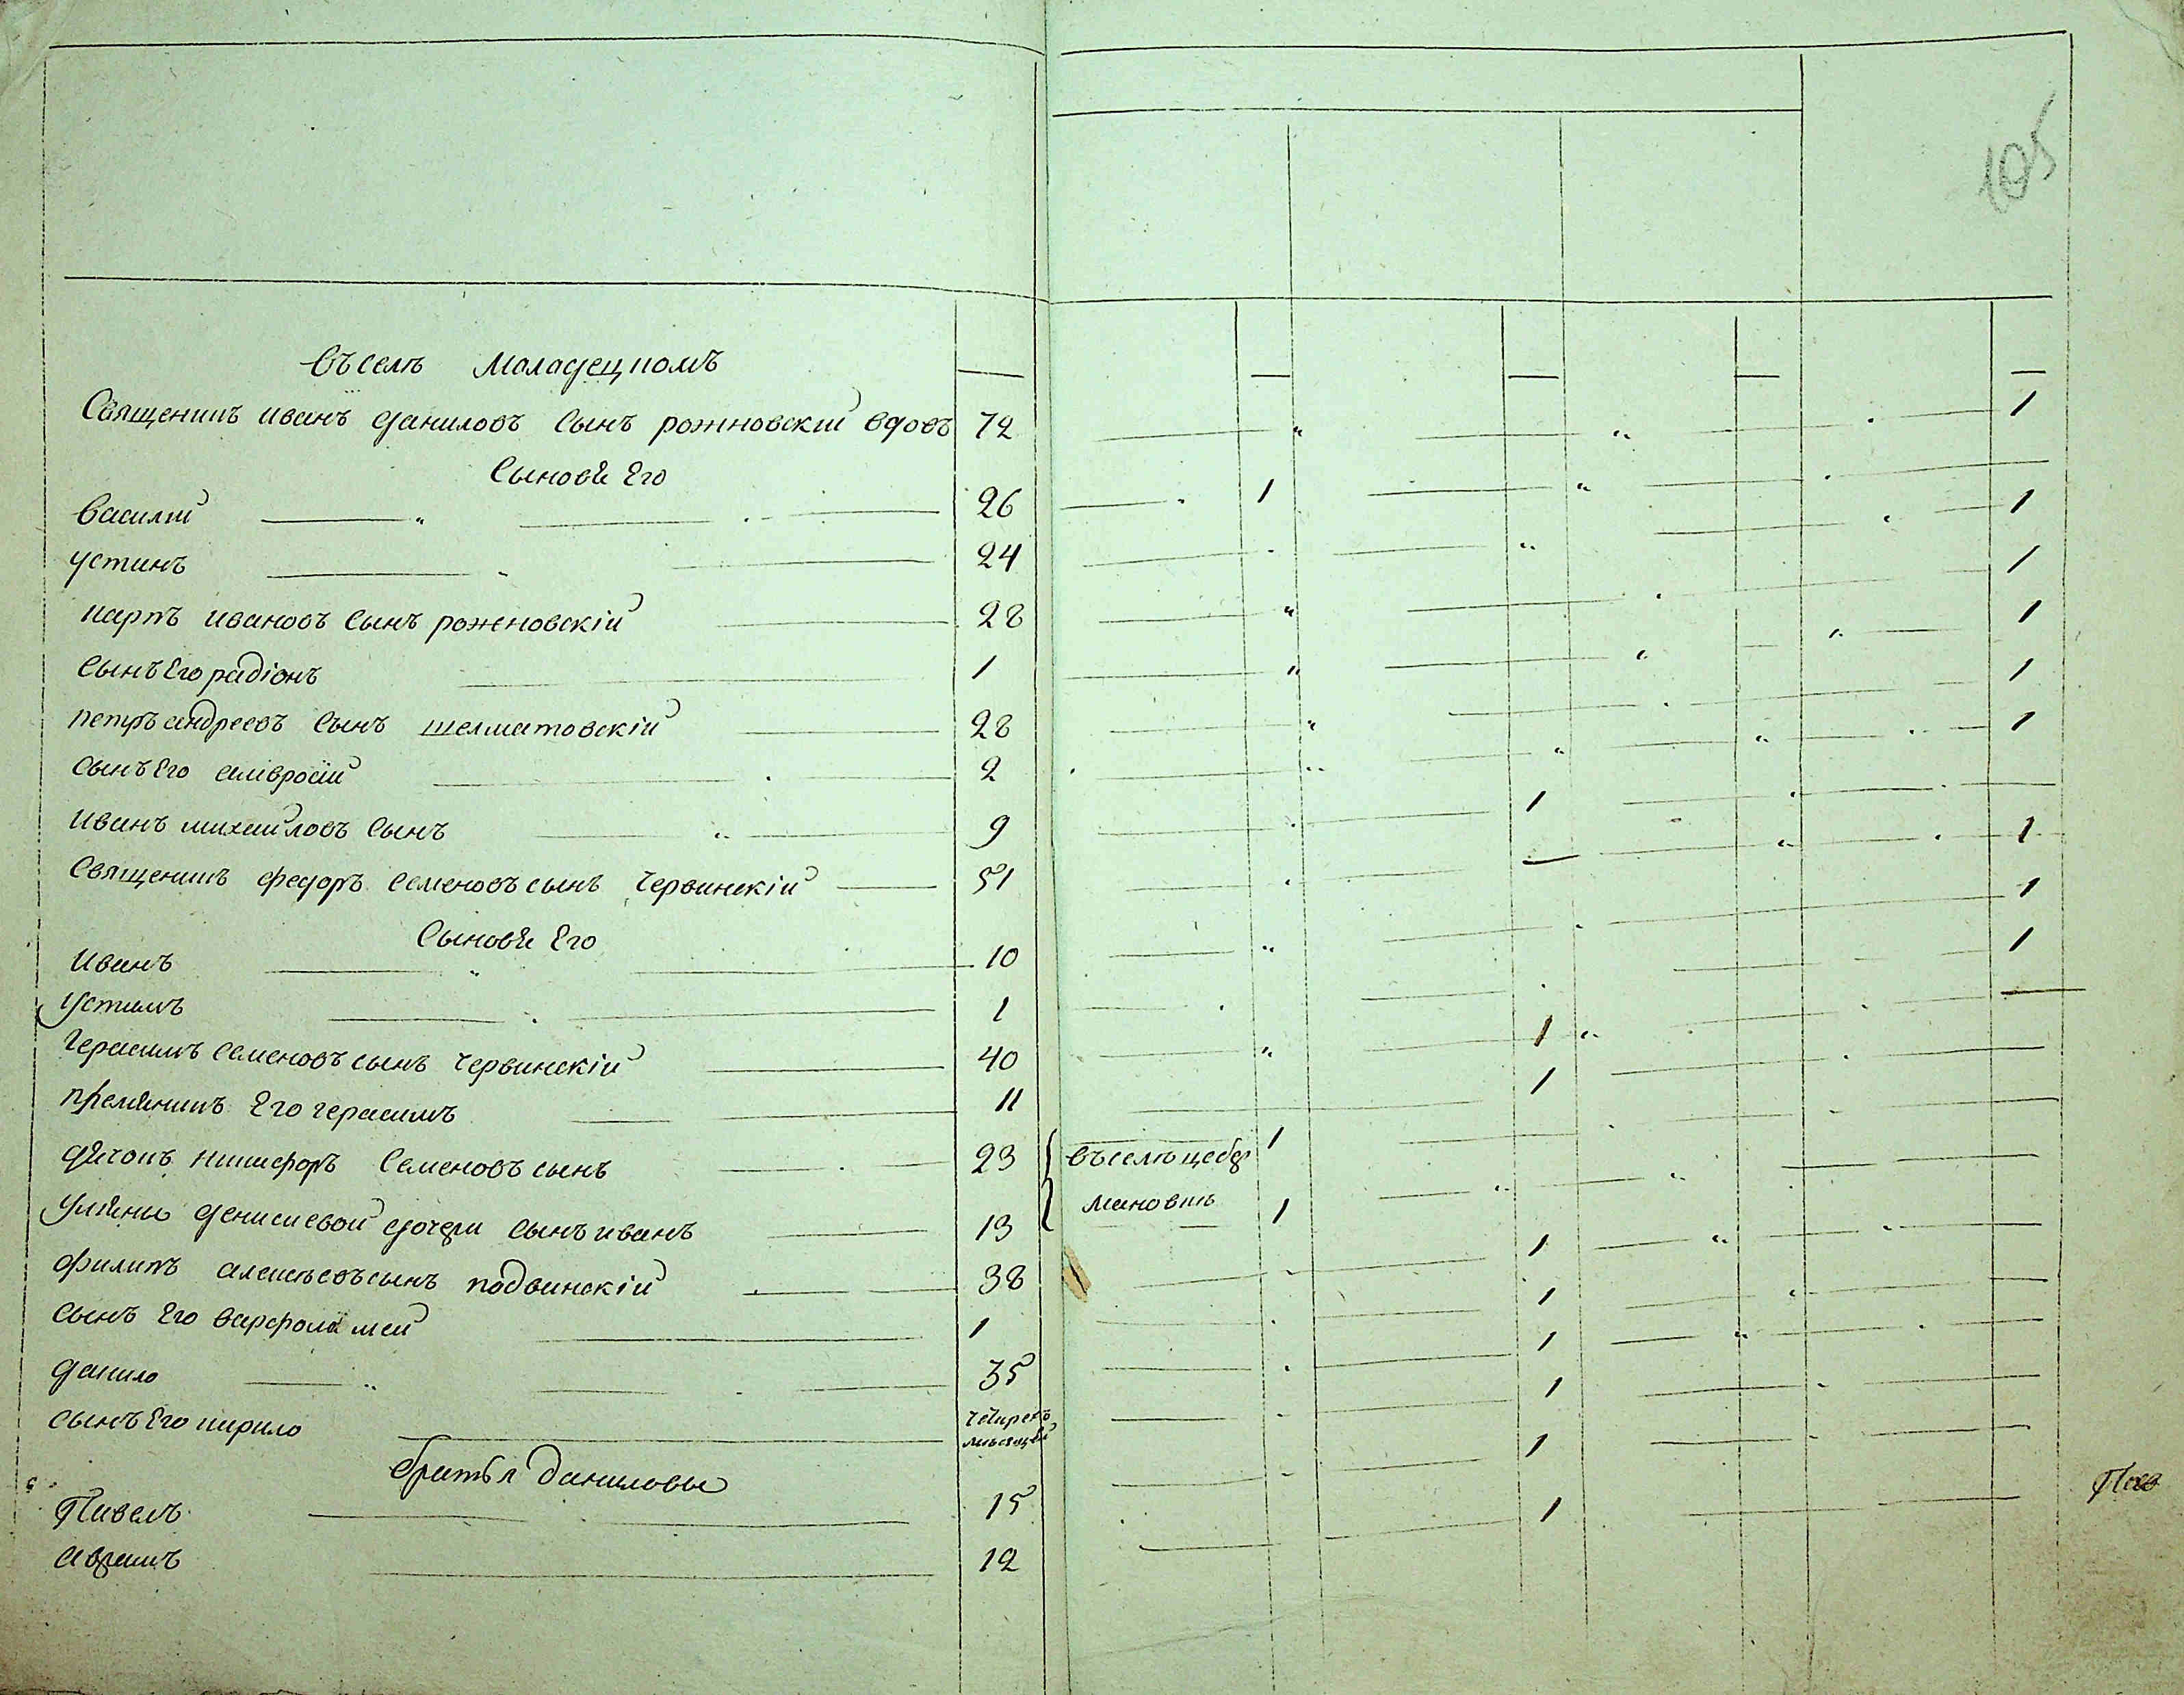 105
Въ селѣ Маладецкомъ
Священикъ иванъ даниловъ сынъ рожновскій вдовъ 72 1
Сыновѣ Его
василій 26 1
устинъ 24 1
карпъ ивановъ сынъ роженовскій 28 1
сынъ Его радіонъ 1 1
петръ андреевъ сынъ шелматовскій 28 1
сынъ Его амвросій 2 1
иванъ михайловъ сынъ 9 1
священикъ федоръ семеновъ сынъ Червинскій 51 1
Сыновѣ Его
иванъ 10 1
устимъ 1 1
Герасимъ семеновъ сынъ червинскій 40 1
племѣникъ Его герасимъ 11 1
дѣчокъ никифоръ Семеновъ сынъ 23 въ селѣ цебер 1
улѣяны денисиевой дочери сынъ иванъ 13 мановкѣ 1
филипъ алексѣевъ сынъ подвинскій 38 1
сынъ Его варфоломей 1 1
данило 35 1
сынъ Его кирило четирехъ мѣсяцей 1
братья даниловы
Павелъ 15 1
аврамъ 12 1